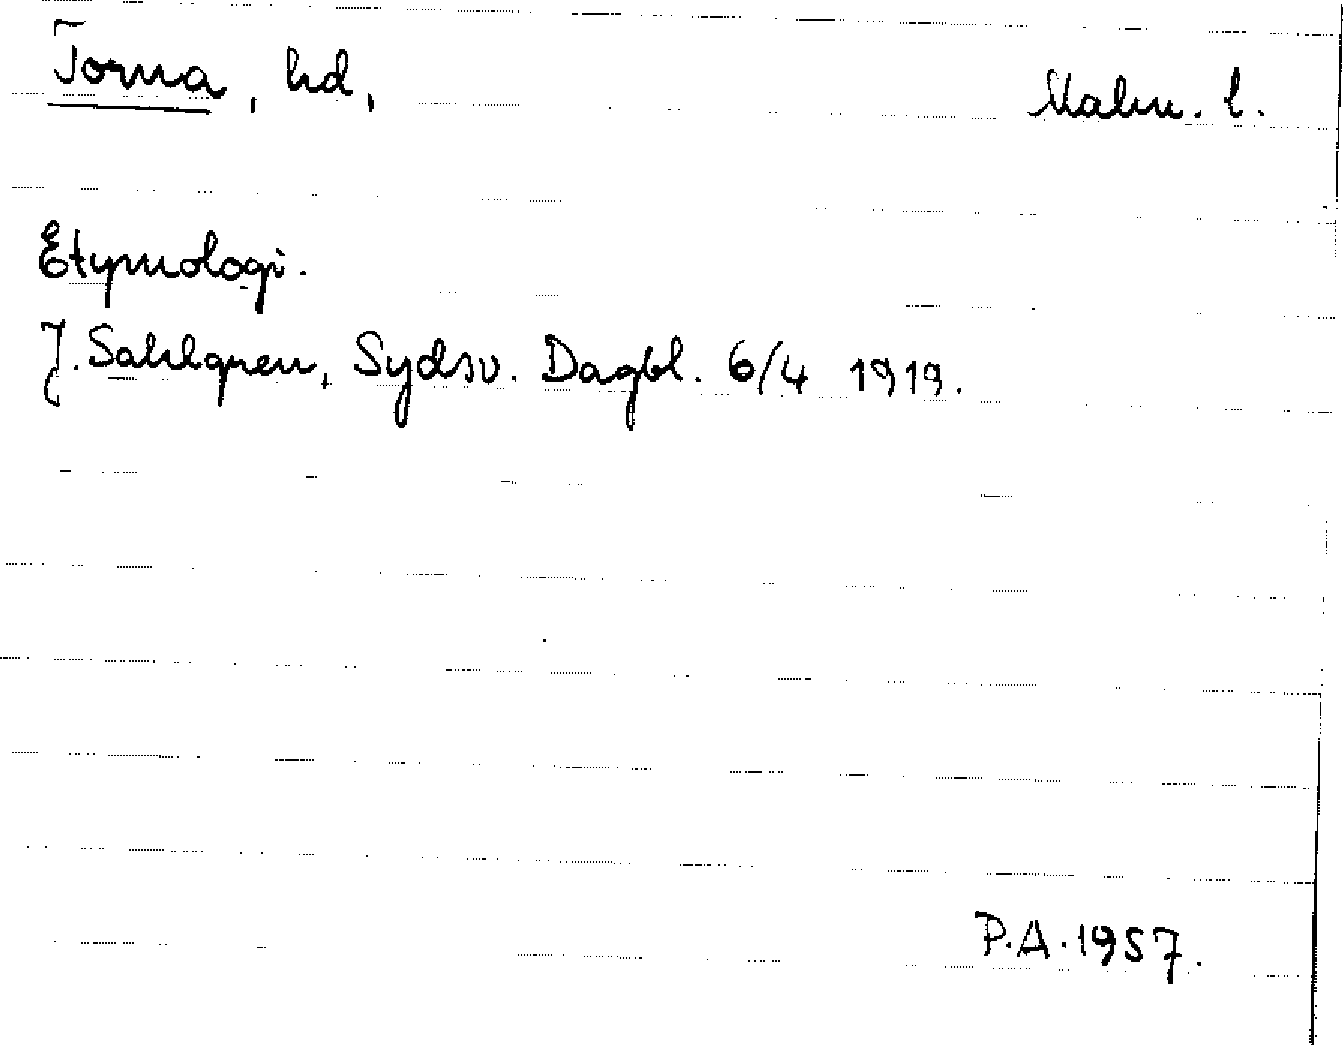 Torna, hd,
Malm. l.
Etymologi.
J. Sahlgren, Sydsv. Dagbl. 6/4 1919.
P.A. 1957.